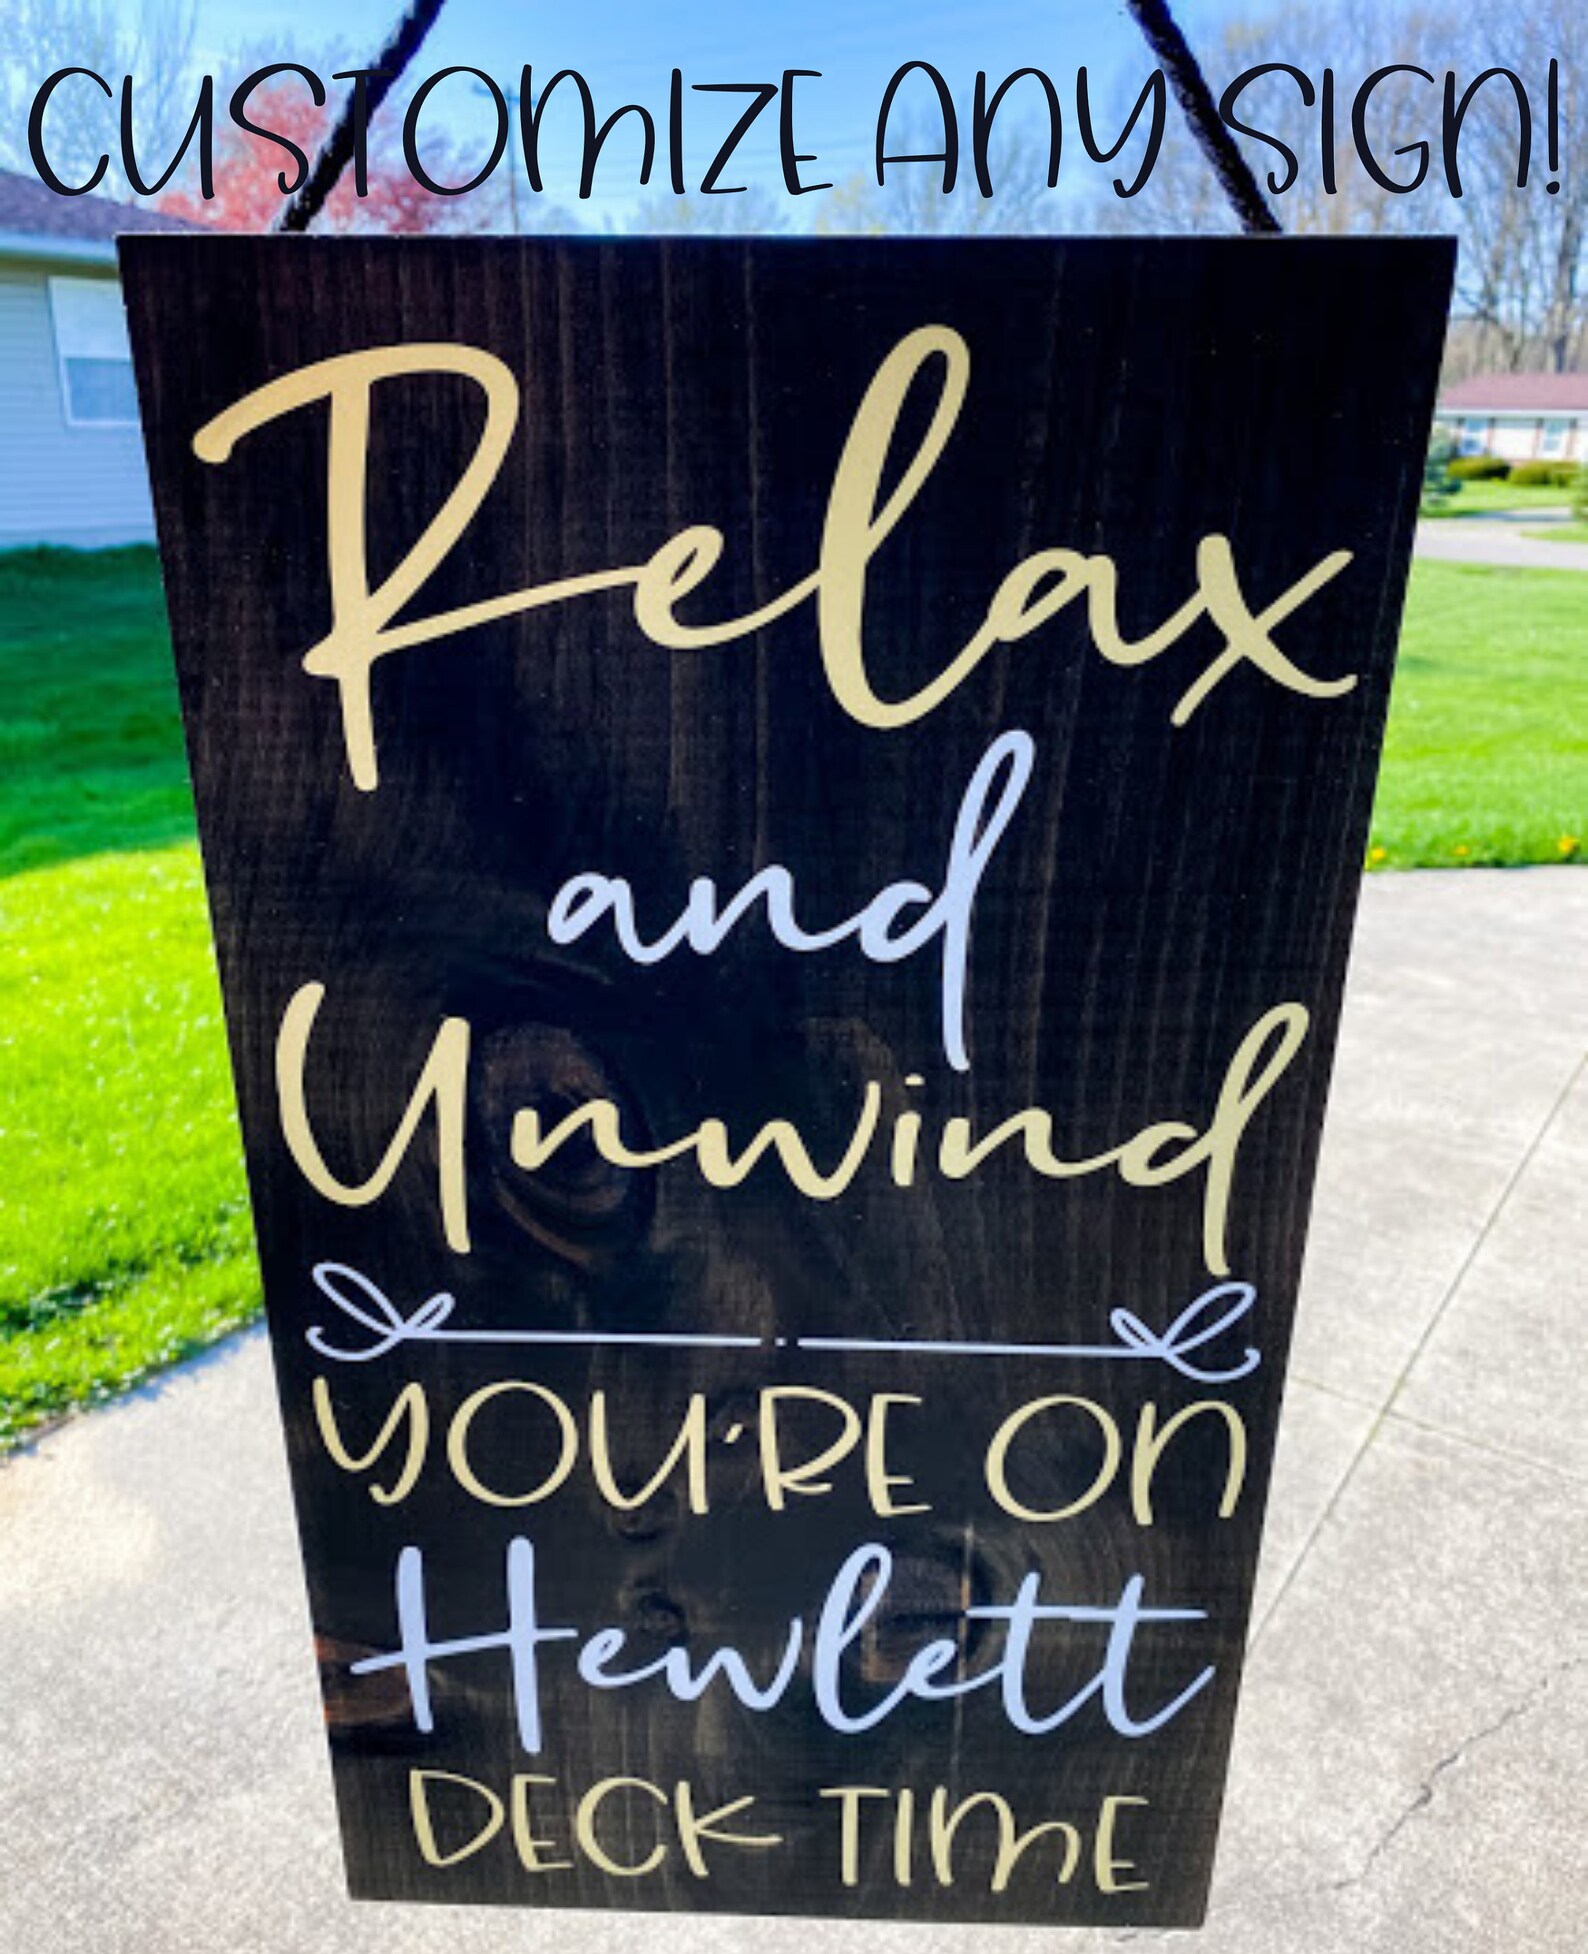 CUSTOMIZE ANY SIGN!
Relax
and
Unwind
YOU'RE ON
Hewlett
DECK TIME